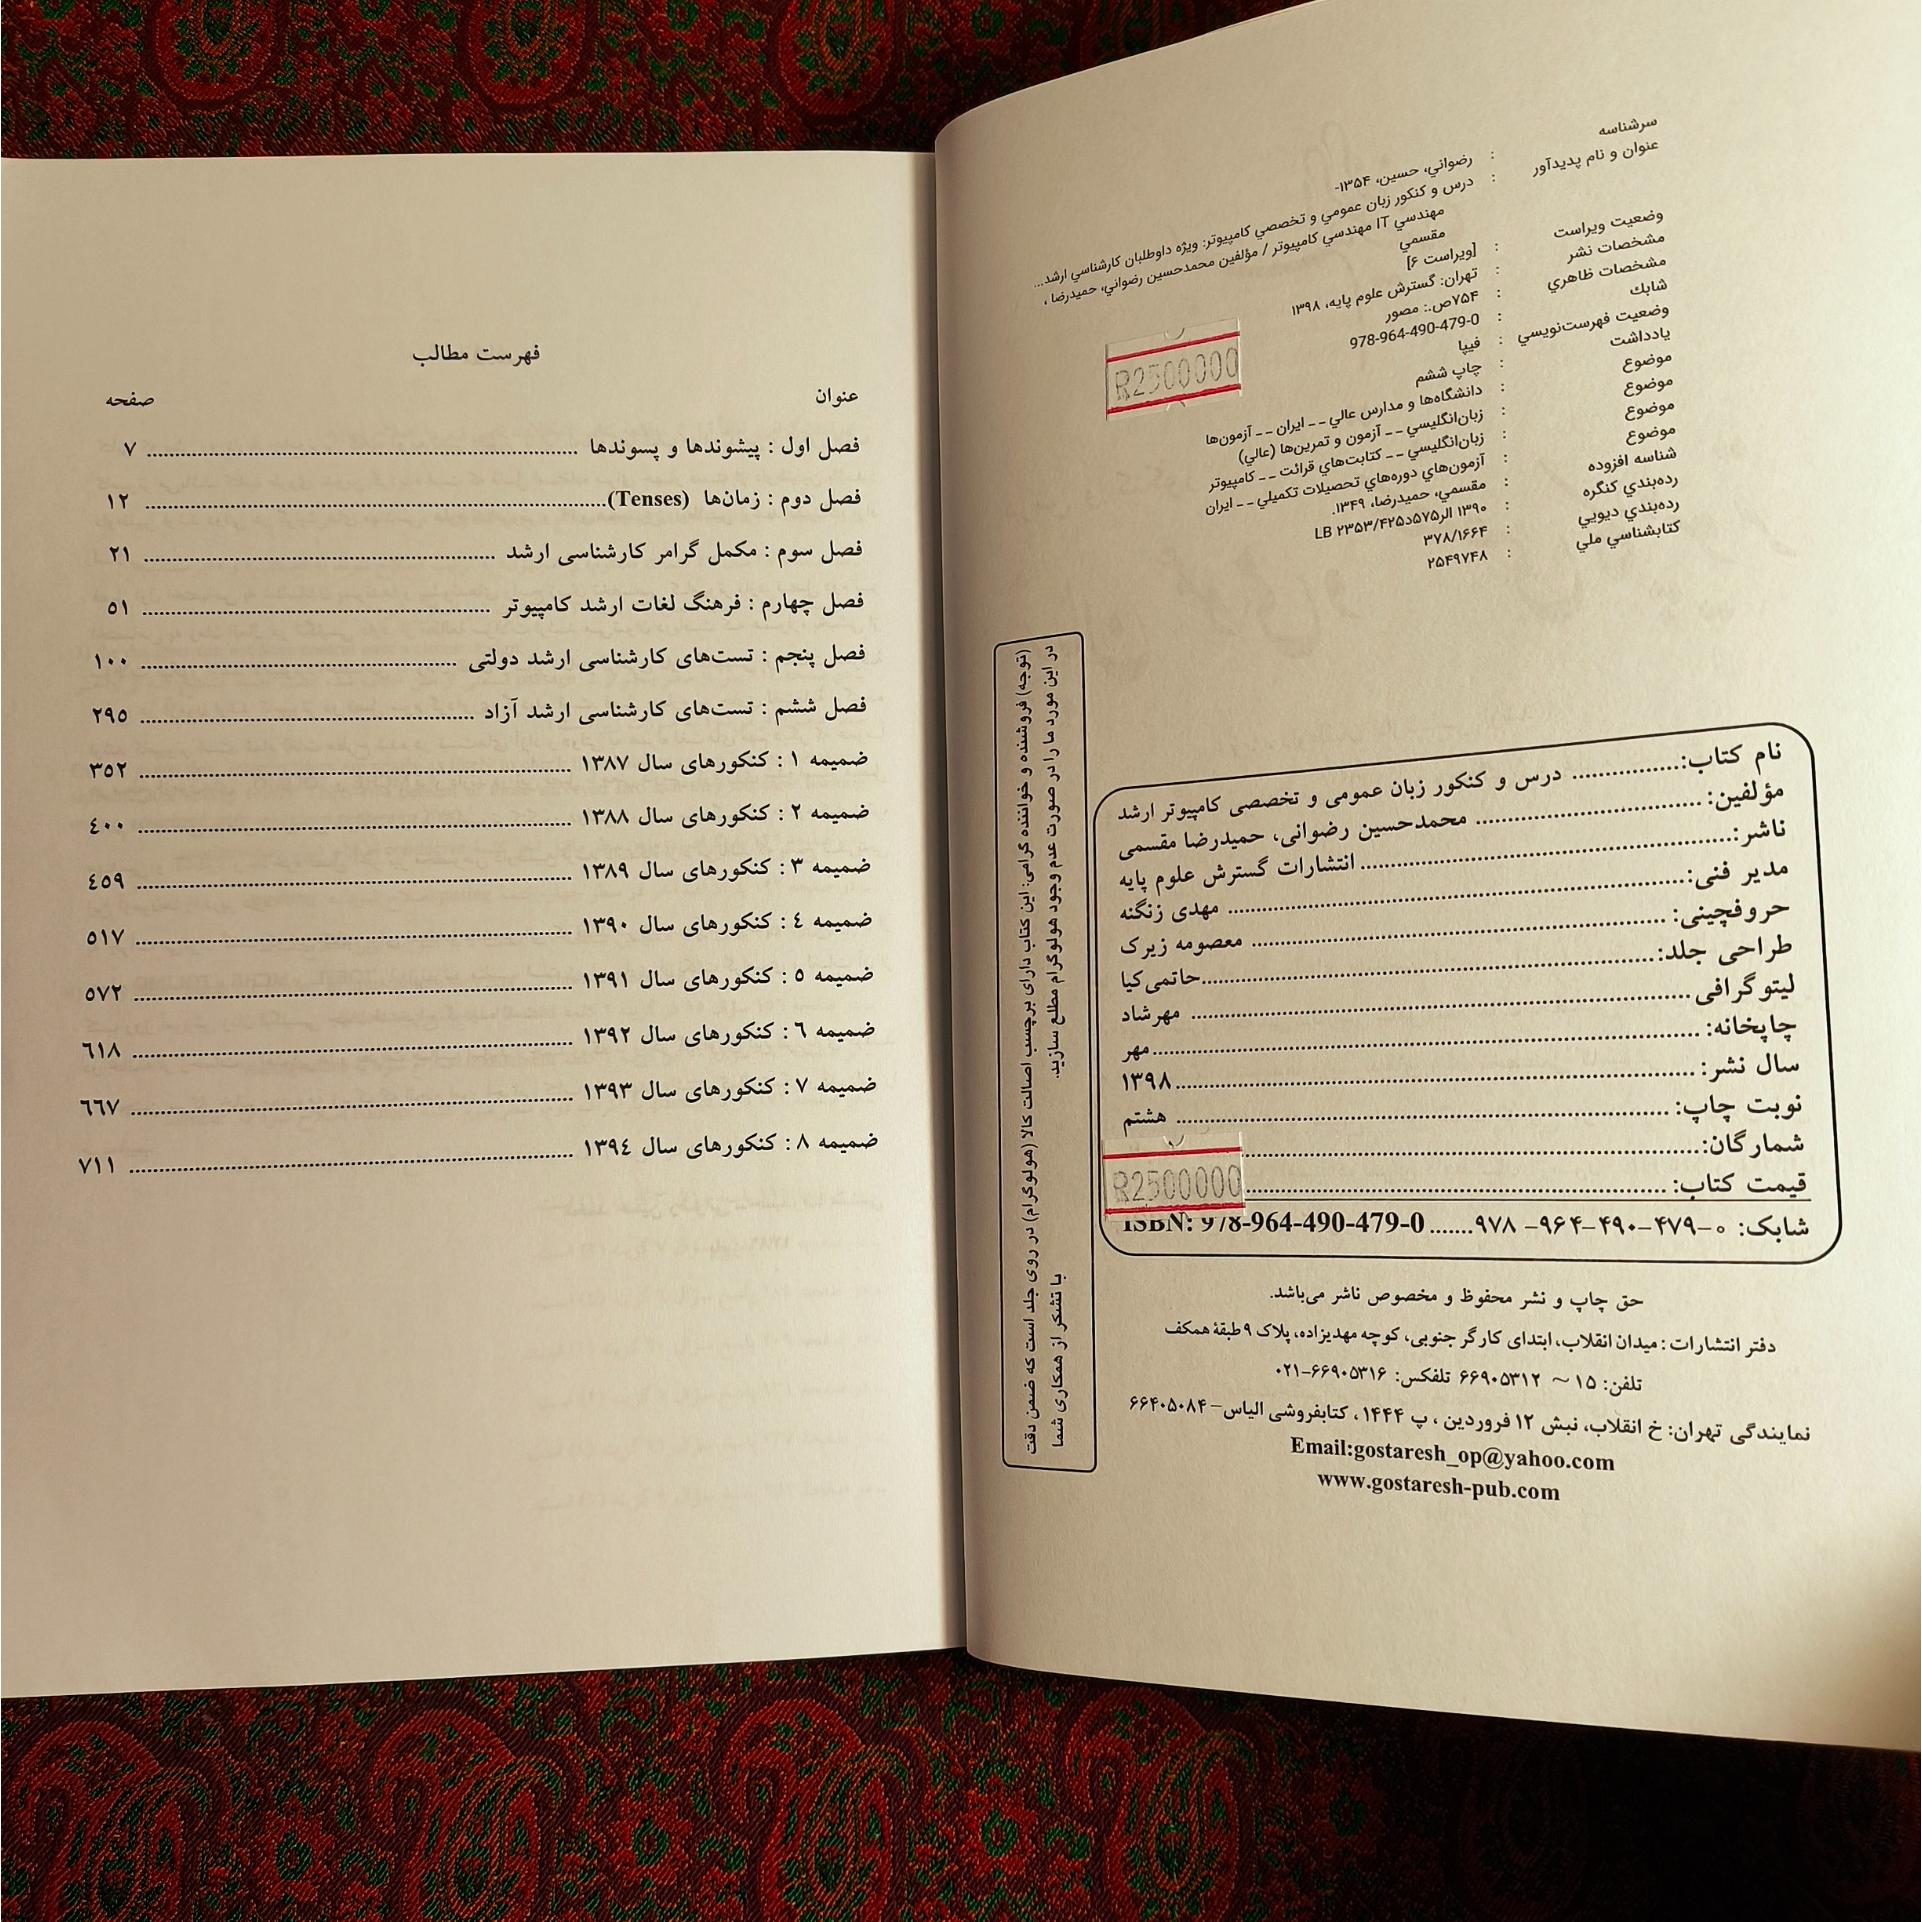 سرشناسه : رضواني، حسين، ۱۳۵۴-
عنوان و نام پديدآور : درس و کنکور زبان عمومي و تخصصي کامپيوتر: ويژه داوطلبان کارشناسي ارشد...
مهندسي IT مهندسي کامپيوتر / مؤلفين محمدحسين رضواني، حميدرضا ،
مقسمي
وضعيت ويراست : [ويراست ۶]
مشخصات نشر : تهران: گسترش علوم پايه، ۱۳۹۸
مشخصات ظاهري : ۷۵۴ص.: مصور
شابك : 978-964-490-479-0
وضعيت فهرست‌نويسي : فيپا
يادداشت : چاپ ششم
موضوع : دانشگاه‌ها و مدارس عالي ــ ايران ــ آزمون‌ها
موضوع : زبان‌انگليسي ــ آزمون و تمرين‌ها (عالي)
موضوع : زبان‌انگليسي ــ کتابت‌هاي قرائت ــ کامپيوتر
موضوع : آزمون‌هاي دوره‌هاي تحصيلات تکميلي ــ ايران
شناسه افزوده : مقسمي، حميدرضا، ۱۳۴۹.
رده‌بندي کنگره : ۱۳۹۰ الر۵۷۵د۴۲۵/LB ۲۳۵۳
رده‌بندي ديويي : ۳۷۸/۱۶۶۴
کتابشناسي ملي : ۲۵۴۹۷۴۸
R2500000
(توجه) فروشنده و خواننده گرامی: این کتاب دارای برچسب اصالت کالا (هولوگرام) در روی جلد است که ضمن دقت
در این مورد ما را در صورت عدم وجود هولوگرام مطلع سازید. با تشکر از همکاری شما
نام کتاب:................ درس و کنکور زبان عمومی و تخصصی کامپیوتر ارشد
مؤلفین:............................ محمدحسین رضوانی، حمیدرضا مقسمی
ناشر:.............................................. انتشارات گسترش علوم پایه
مدیر فنی:......................................................... مهدی زنگنه
حروفچینی: .................................................... معصومه زیرک
طراحی جلد:.......................................................حاتمی‌کیا
لیتوگرافی............................................................. مهرشاد
چاپخانه: ..................................................................مهر
سال نشر: ..............................................................۱۳۹۸
نوبت چاپ:............................................................ هشتم
شمارگان:.......................................................
قیمت کتاب: ...................................................... R2500000
شابک: ۰-۴۷۹-۴۹۰-۹۶۴- ۹۷۸.......ISBN: 978-964-490-479-0
حق چاپ و نشر محفوظ و مخصوص ناشر می‌باشد.
دفتر انتشارات : میدان انقلاب، ابتدای کارگر جنوبی، کوچه مهدیزاده، پلاک ۹ طبقۀ همکف
تلفن: ۱۵ ~ ۶۶۹۰۵۳۱۲ تلفکس: ۶۶۹۰۵۳۱۶-۰۲۱
نمایندگی تهران: خ انقلاب، نبش ۱۲ فروردین ، پ ۱۴۴۴ ، کتابفروشی الیاس- ۶۶۴۰۵۰۸۴
Email:gostaresh_op@yahoo.com
www.gostaresh-pub.com
فهرست مطالب
عنوان صفحه
فصل اول : پیشوندها و پسوندها ........................................ ۷
فصل دوم : زمان‌ها (Tenses)........................................ ۱۲
فصل سوم : مکمل گرامر کارشناسی ارشد ........................................ ۲۱
فصل چهارم : فرهنگ لغات ارشد کامپیوتر ........................................ ۵۱
فصل پنجم : تست‌های کارشناسی ارشد دولتی ........................................ ۱۰۰
فصل ششم : تست‌های کارشناسی ارشد آزاد ........................................ ۲۹۵
ضمیمه ۱ : کنکورهای سال ۱۳۸۷ ........................................ ۳۵۲
ضمیمه ۲ : کنکورهای سال ۱۳۸۸ ........................................ ٤۰۰
ضمیمه ۳ : کنکورهای سال ۱۳۸۹ ........................................ ٤۵۹
ضمیمه ٤ : کنکورهای سال ۱۳۹۰ ........................................ ۵۱۷
ضمیمه ۵ : کنکورهای سال ۱۳۹۱ ........................................ ۵۷۲
ضمیمه ٦ : کنکورهای سال ۱۳۹۲ ........................................ ٦۱۸
ضمیمه ۷ : کنکورهای سال ۱۳۹۳ ........................................ ٦٦۷
ضمیمه ۸ : کنکورهای سال ۱۳۹٤ ........................................ ۷۱۱